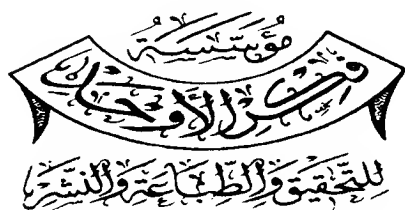 مُؤَسَّسَة
فِكْرُ الأَوْحَد
لِلتَّحْقِيقِ وَالطِّبَاعَةِ وَالنَّشْرِ